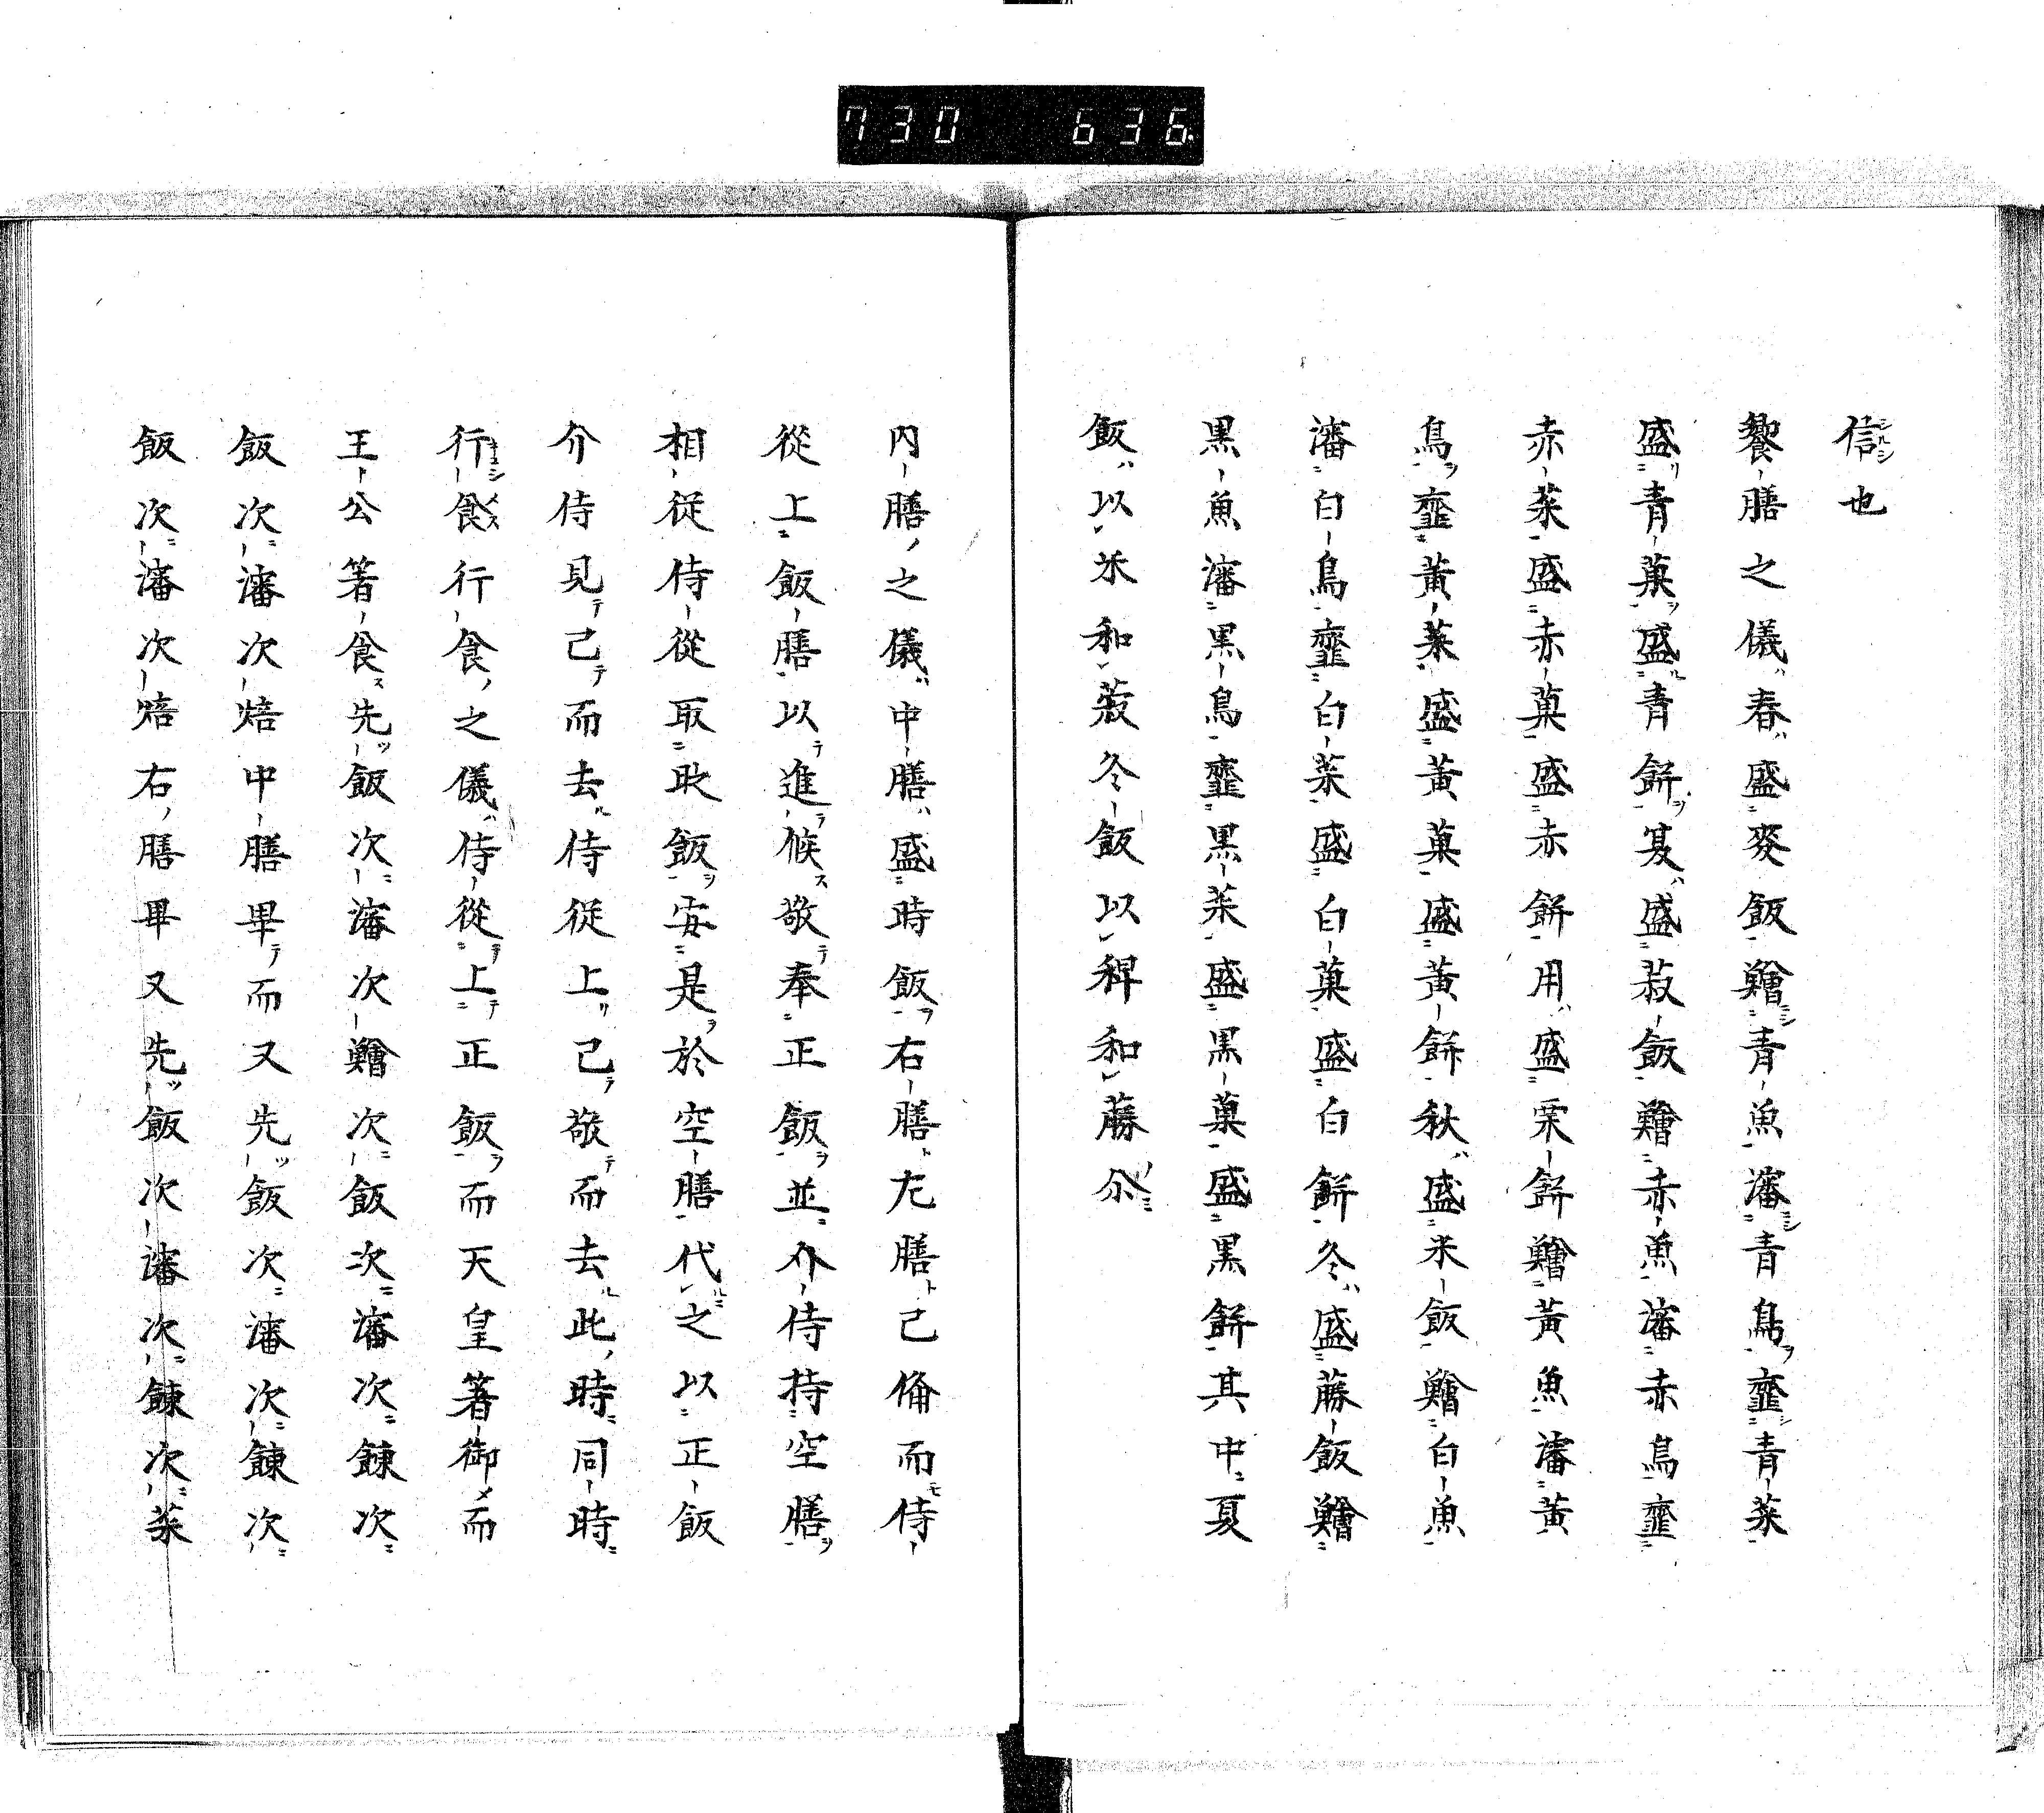 730 636
信也
饗膳之儀春盛麥飯鱠青魚瀋青鳥韲青菜
盛青菓盛青餅夏盛菽飯鱠赤魚瀋赤鳥韲
赤菜盛赤菓盛赤餅用盛粟餅鱠黃魚瀋黃
鳥韲黃菜盛黃菓盛黃餅秋盛米飯鱠白魚
瀋白鳥韲白菜盛白菓盛白餅冬盛藤飯鱠
黒魚瀋黒鳥韲黒菜盛黒菓盛黒餅其中夏
飯以米和菽冬飯以稗和藤
内膳之儀中膳盛時飯右膳左膳已俻而侍
從上飯膳以進候敬奉正飯並介侍持空膳
相従侍從取飯安是於空膳代之以正飯
介侍見已而去侍従上已敬而去此時同時
行食行食之儀侍從上正飯而天皇箸御而
王公箸食先飯次瀋次鱠次飯次瀋次餗次
飯次瀋次焙中膳畢而又先飯次瀋次餗次
飯次瀋次焙右膳畢又先飯次瀋次餗次菜